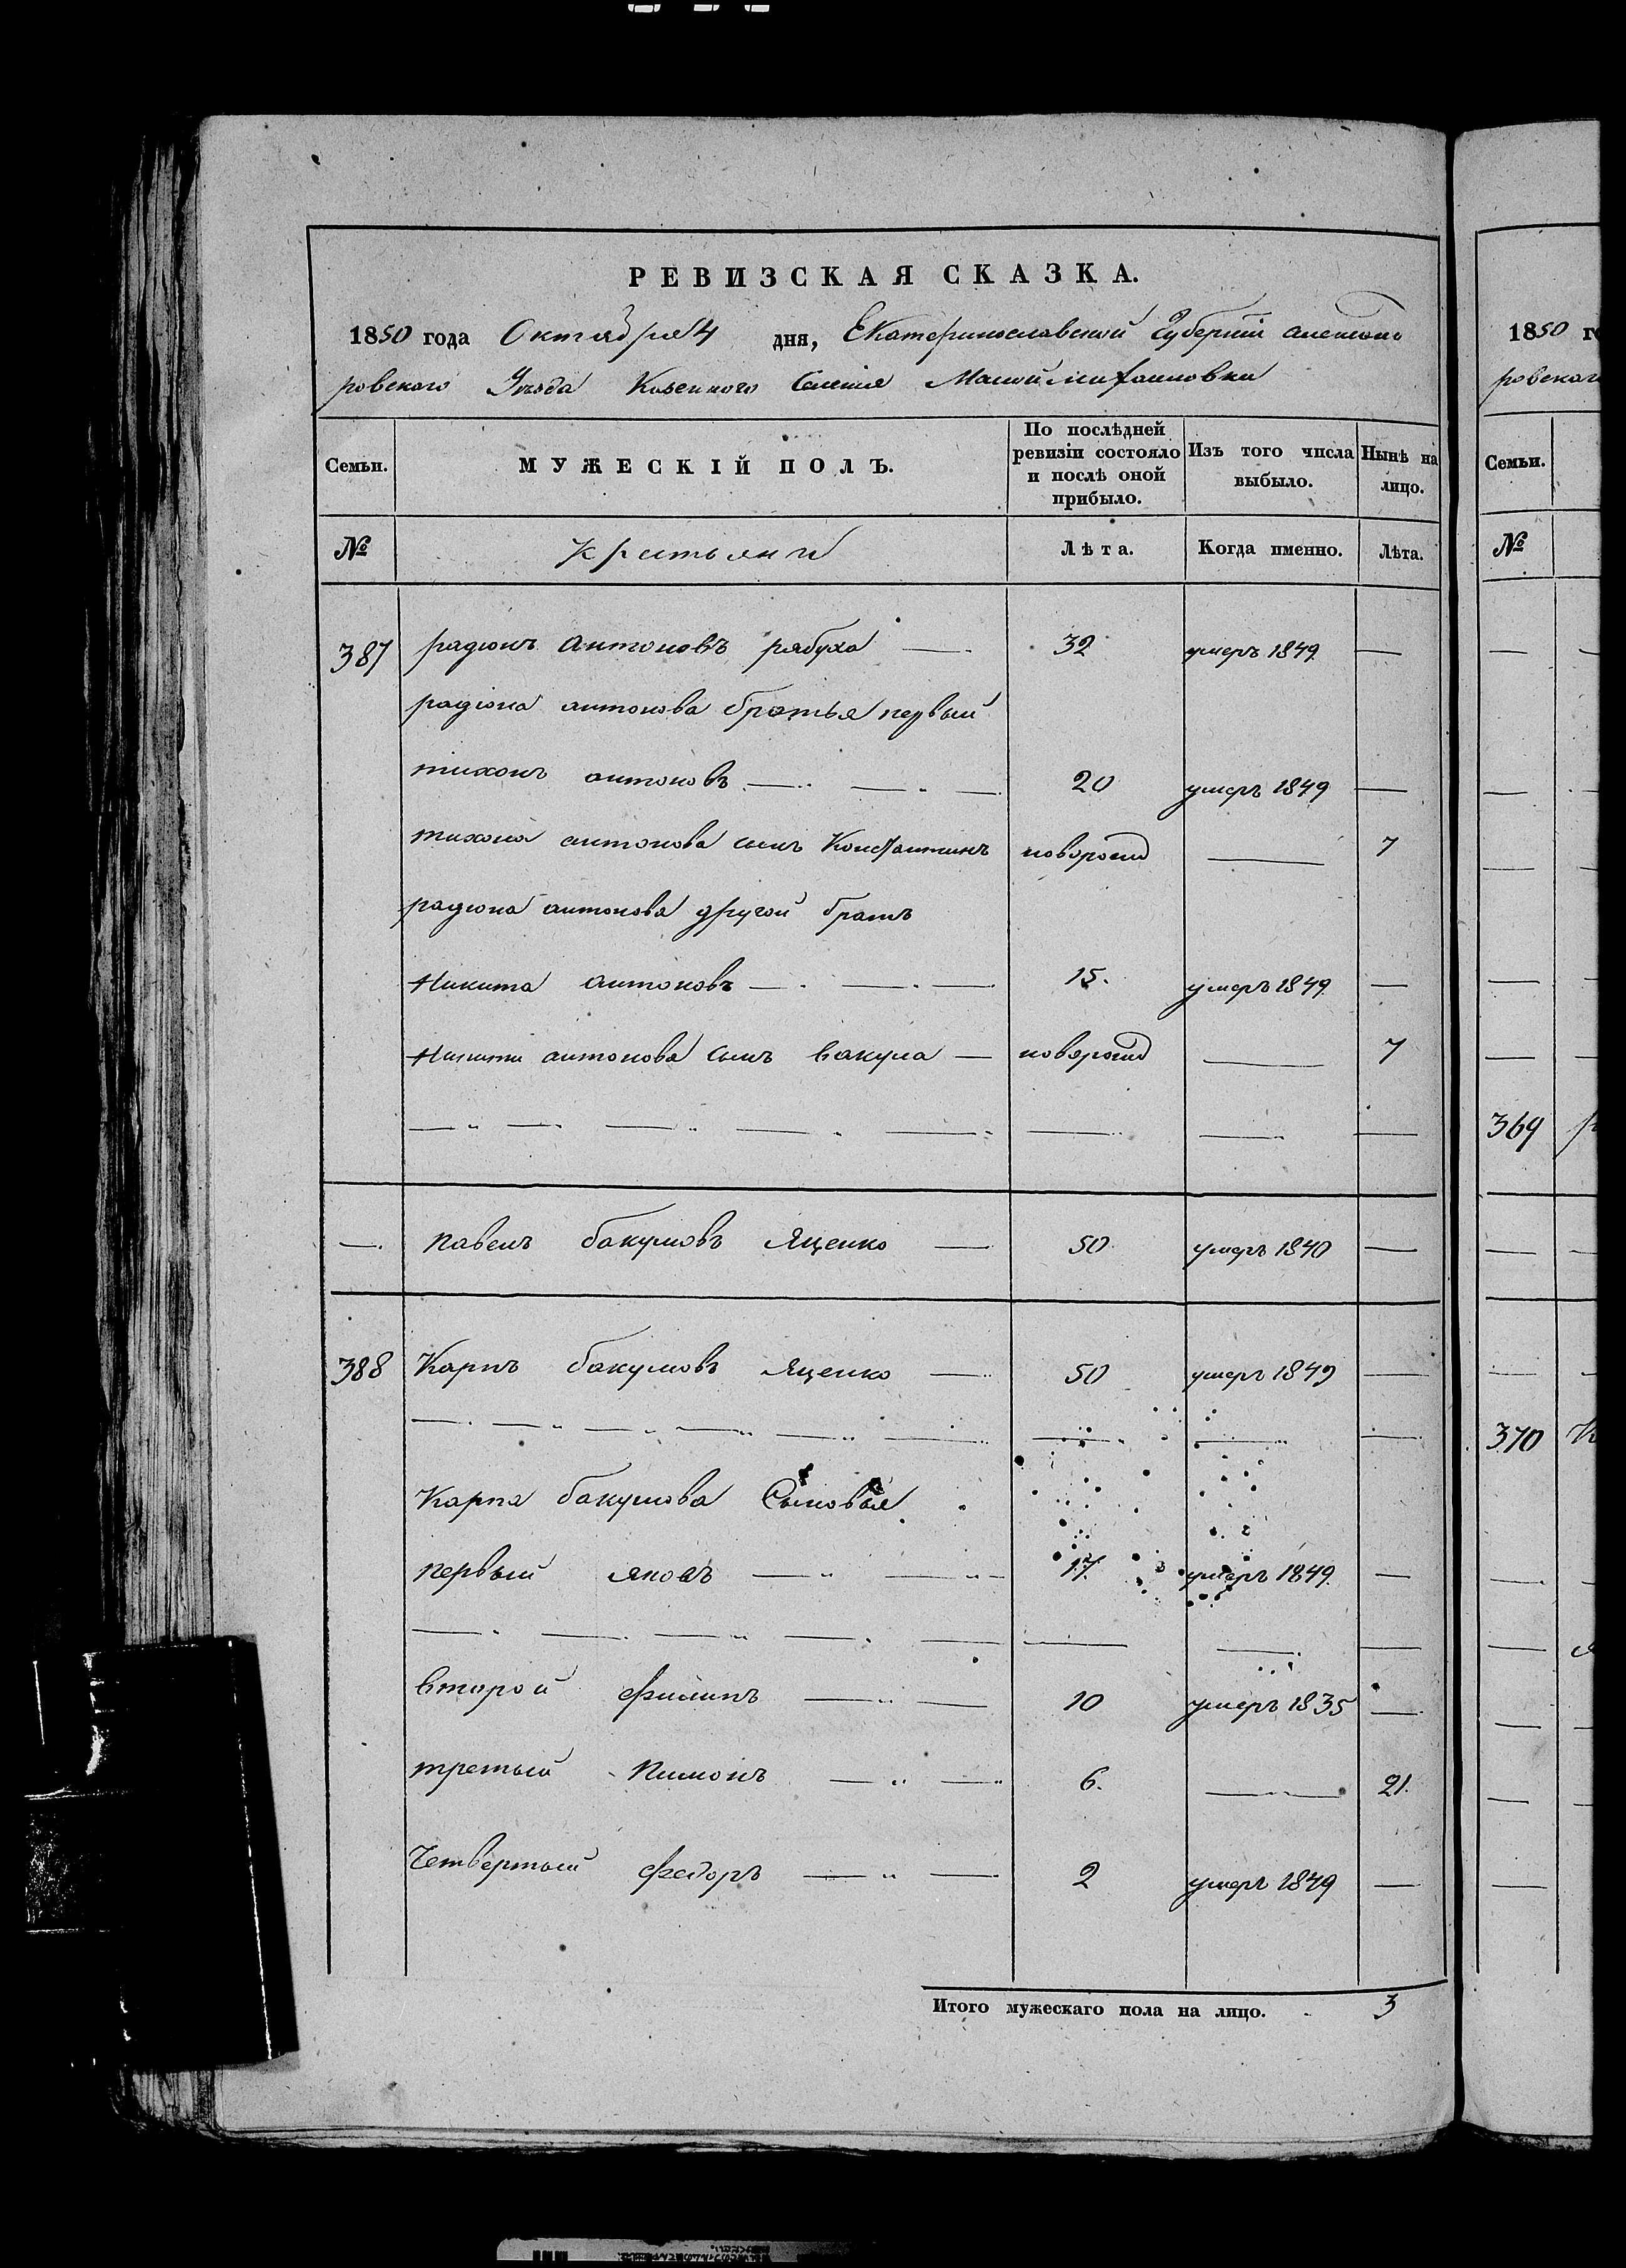 РЕВИЗСКАЯ СКАЗКА.
1850 года Октября 4 дня, Екатеринославской Губерніи Александ
ровскаго Уѣзда Казенного Селенія Малоймихайловки
Семьи. МУЖЕСКІЙ ПОЛЪ. По послѣдней ревизіи состояло и послѣ оной прибыло. Изъ того числа выбыло. Нынѣ на лицо.
№ Крестьяни Лѣта. Когда именно. Лѣта.
387 радионъ антоновъ рябуха — 32 умеръ 1849 —
радіона антонова братья первый
тихонъ антоновъ — — — 20 умеръ 1849 —
тихона антонова сынъ Константинъ новорожд — 7
радиона антонова другой братъ
Никита антоновъ — — — 15. умеръ 1849 —
Никиты антонова сынъ вакула — новорожд — 7
— павелъ бакумовъ Яценко — 50 умеръ 1840 —
388 Карпъ бакумовъ Яценко — 50 умеръ 1849 —
Карпа бакумова Сыновья
первый яковъ — — 17. умеръ 1849. —
второй филипъ — — 10 умеръ 1835 —
третый Пимонъ — — 6. — 21.
Четвертый федоръ — — 2 умеръ 1849 —
Итого мужескаго пола на лицо. 3
1850 го
ровскаго
Семьи.
№
369
370